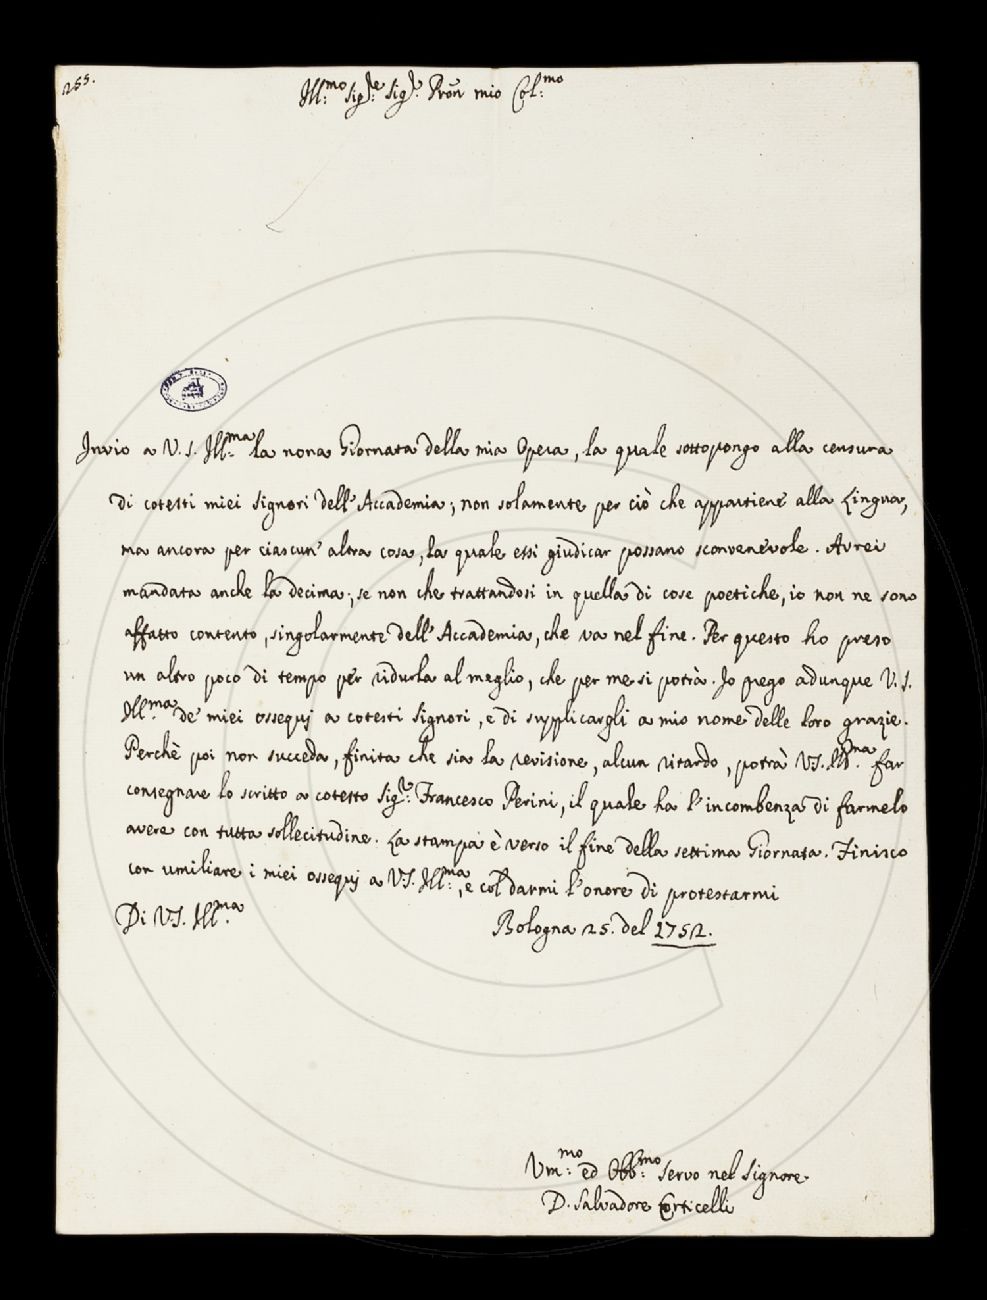 255.
Ill:mo Sig:re Sig:re Pron mio Col:mo
Invio a V. S. Ill:ma la nona Giornata della mia Opera, la quale sottopongo alla censura
di cotesti miei Signori dell'Accademia; non solamente per ciò che appartiene alla Lingua,
ma ancora per ciascun' altra cosa, la quale essi giudicar possano sconvenevole. Avrei
mandata anche la decima; se non che trattandosi in quella di cose poetiche, io non ne sono
affatto contento, singolarmente dell'Accademia, che va nel fine. Per questo ho preso
un altro poco di tempo per ridurla al meglio, che per me si potrà. Io prego adunque V. S.
Ill:ma de' miei ossequj a cotesti Signori, e di supplicargli a mio nome delle loro grazie.
Perchè poi non succeda, finita che sia la revisione, alcun ritardo, potrà V.S. Ill:ma far
consegnare lo scritto a cotesto Sig:re Francesco Perini, il quale ha l'incombenza di farmelo
avere con tutta sollecitudine. La stampa è verso il fine della settima Giornata. Finisco
con umiliare i miei ossequj a V.S. Ill:ma, e col darmi l'onore di protestarmi
Di V.S. Ill:ma
Bologna 25. del 1752.
Um:mo ed Obb:mo Servo nel Signore
D. Salvadore Corticelli